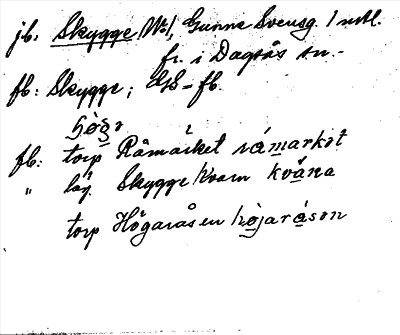 jb: Skygge No1, Gunne Svensg. 1 mtl.
fr. i Dagsås sn.-
fb: Skygge; GS-fb.
fb: torp Råmärket råmarkət
" läg. Skygge Kvarn kvåna
torp Högaråsen højaråson